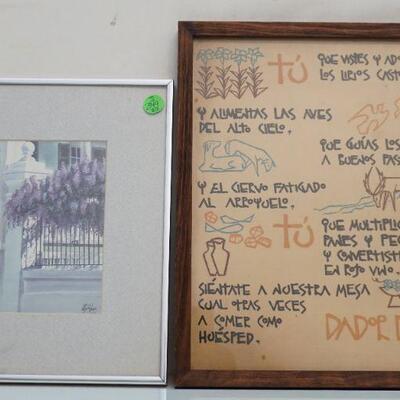 TÚ QUE VISTES Y
LOS LIRIOS
Y ALIMENTAS LAS AVES
DEL ALTO CIELO,
QUE GUÍAS LOS
A BUENOS
Y EL CIERVO FATIGADO
AL ARROYUELO.
TÚ QUE
PANES Y
Y
EN ROJO VINO.
SIÉNTATE A NUESTRA MESA
CUAL OTRAS VECES
A COMER COMO
HUÉSPED.
DADOR